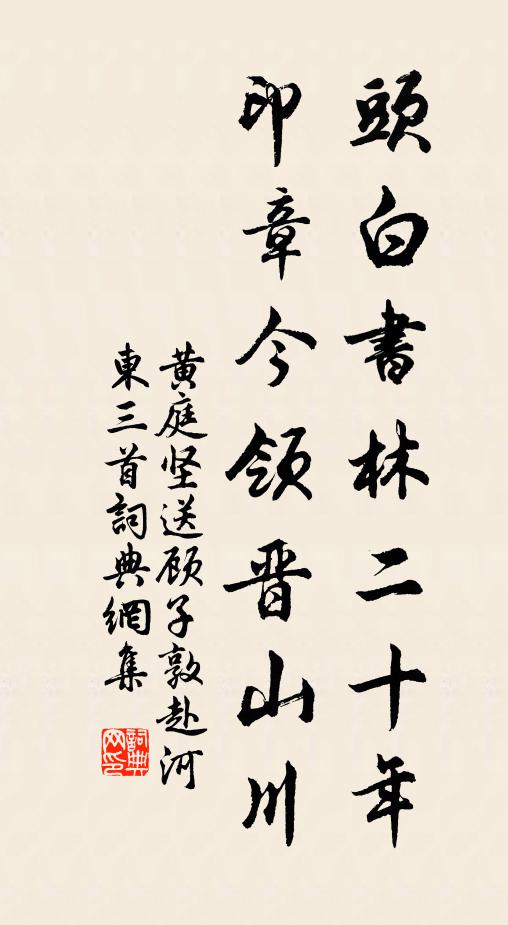 頭白書林二十年
印章今領晋山川
黄庭坚送顾子敦赴河
東三首詞典網集
詞典网印